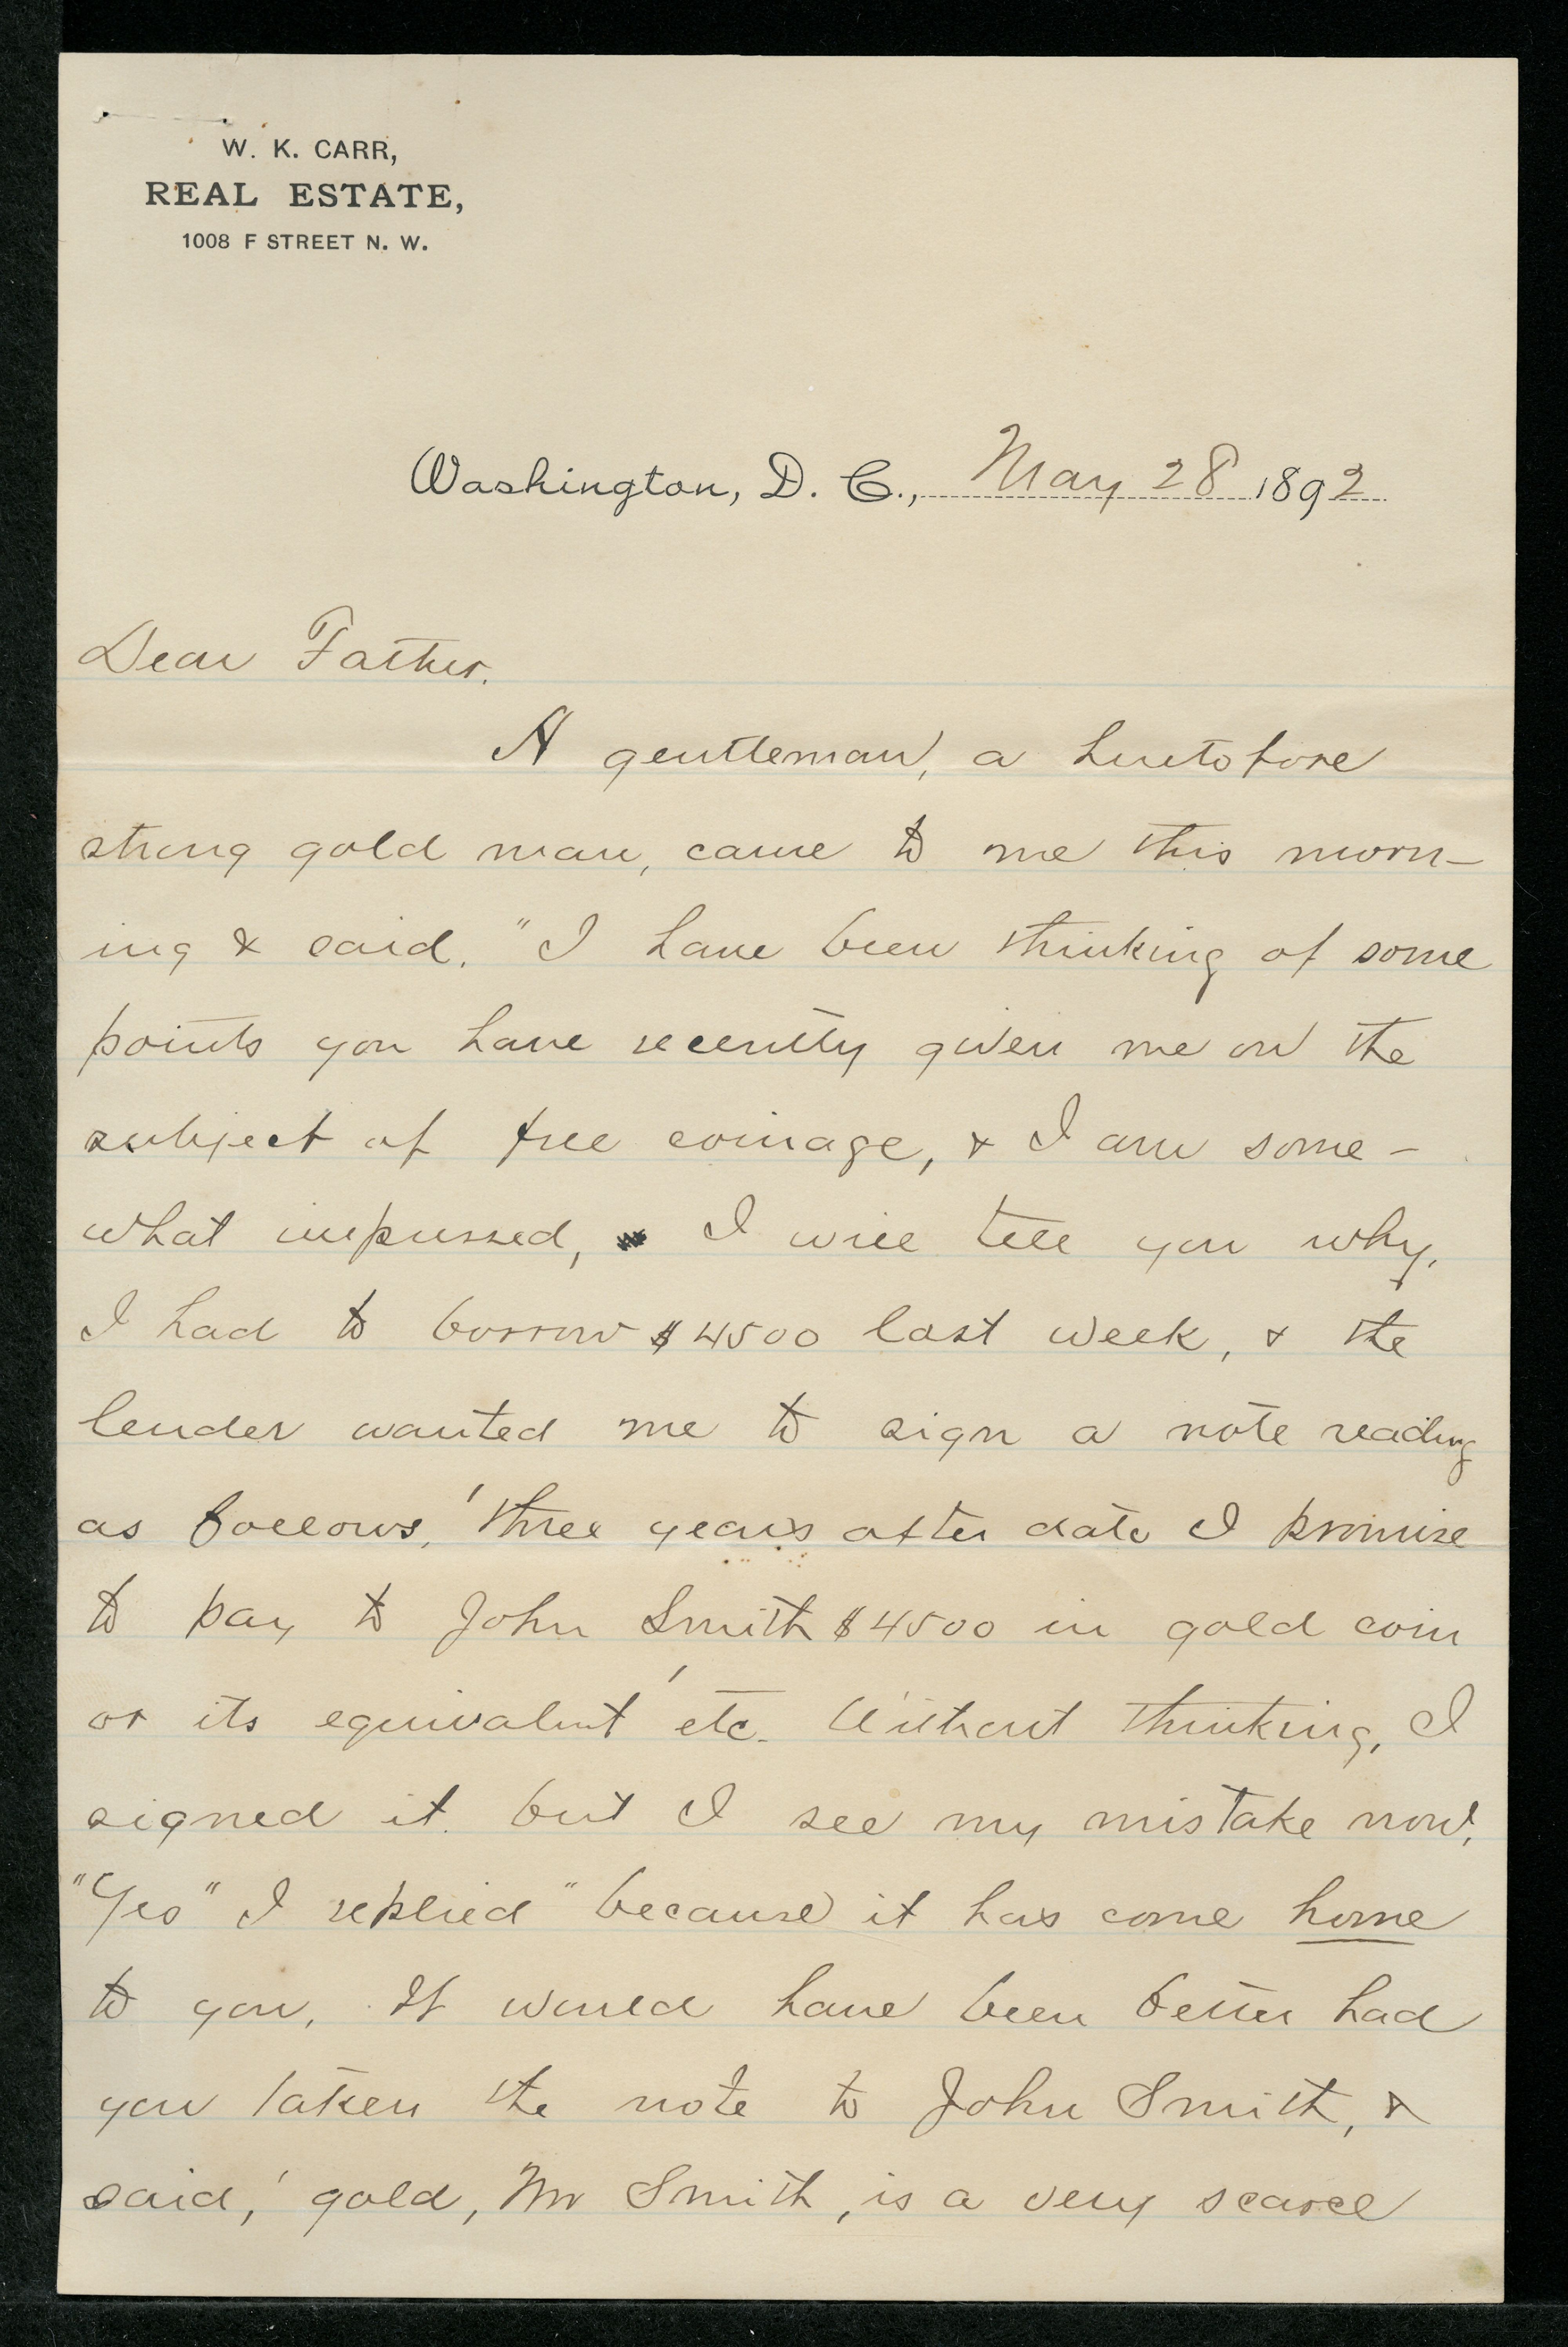 W. K. CARR,
REAL ESTATE,
1008 F STREET N. W.
Washington, D. C., May 28 1892
Dear Father.
A gentleman, a heretofore
strong gold man, came to me this morn-
ing & said. "I have been thinking of some
points you have recently given me on the
subject of free coinage, & I am some-
what impressed, I will tell you why.
I had to borrow $4500 last week, & the
lender wanted me to sign a note reading
as follows, 'three years after date I promise
to pay to John Smith $4500 in gold coin
or its equivalent' etc. Without thinking, I
signed it. but I see my mistake now,
"Yes" I replied "because it has come home
to you. It would have been better had
you taken the note to John Smith, &
said, 'gold, Mr Smith, is a very scarce